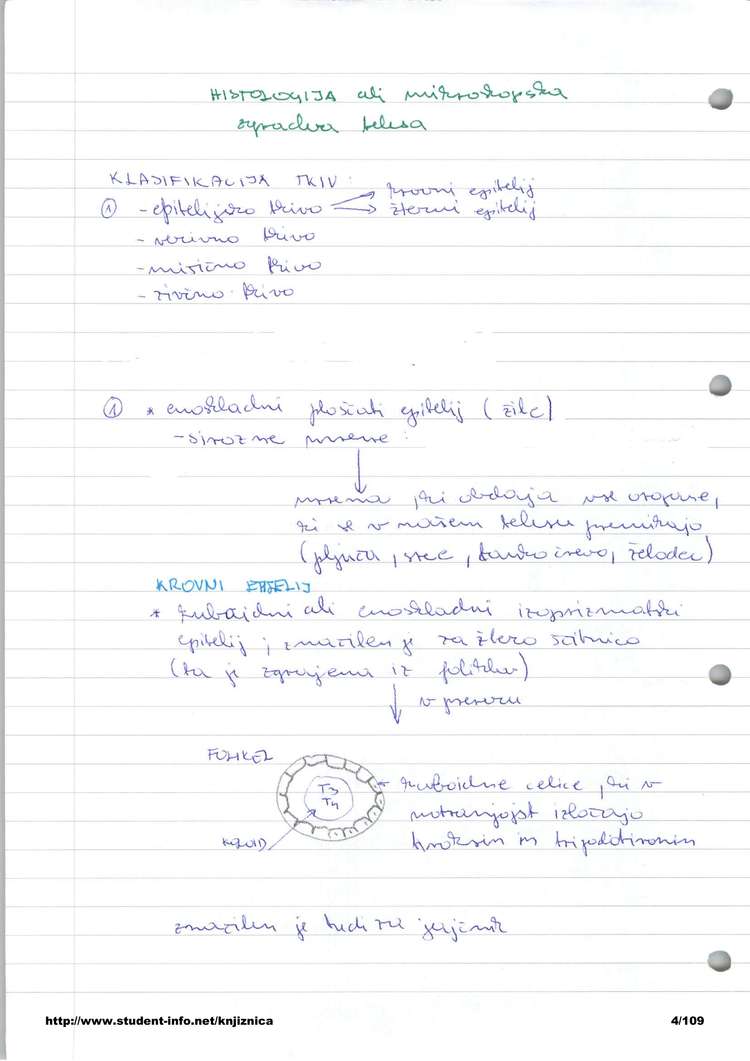 HISTOLOGIJA ali mikroskopska
zgradba telesa
KLASIFIKACIJA TKIV:
① - epitelijsko tkivo → krovni epitelij
→ žlezni epitelij
- vezivno tkivo
- mišično tkivo
- živčno tkivo
① * enoskladni ploščati epitelij (žile)
- sirozne mrene:
mrena, ki obdaja vse organe,
ki se v našem telesu premikajo
(pljuča, srce, tanko črevo, želodec)
KROVNI EPITELIJ
* kubaidni ali enoskladni izoprizmatski
epitelij; značilen je za žlezo ščitnico
(ta je zgrajena iz foliklov)
v prerezu
FOLIKEL
T3
T4
KOLOID
kuboidne celice, ki v
notranjost izločajo
tiroksin in trijodotironin
značilen je tudi za jajčnik
http://www.student-info.net/knjiznica
4/109